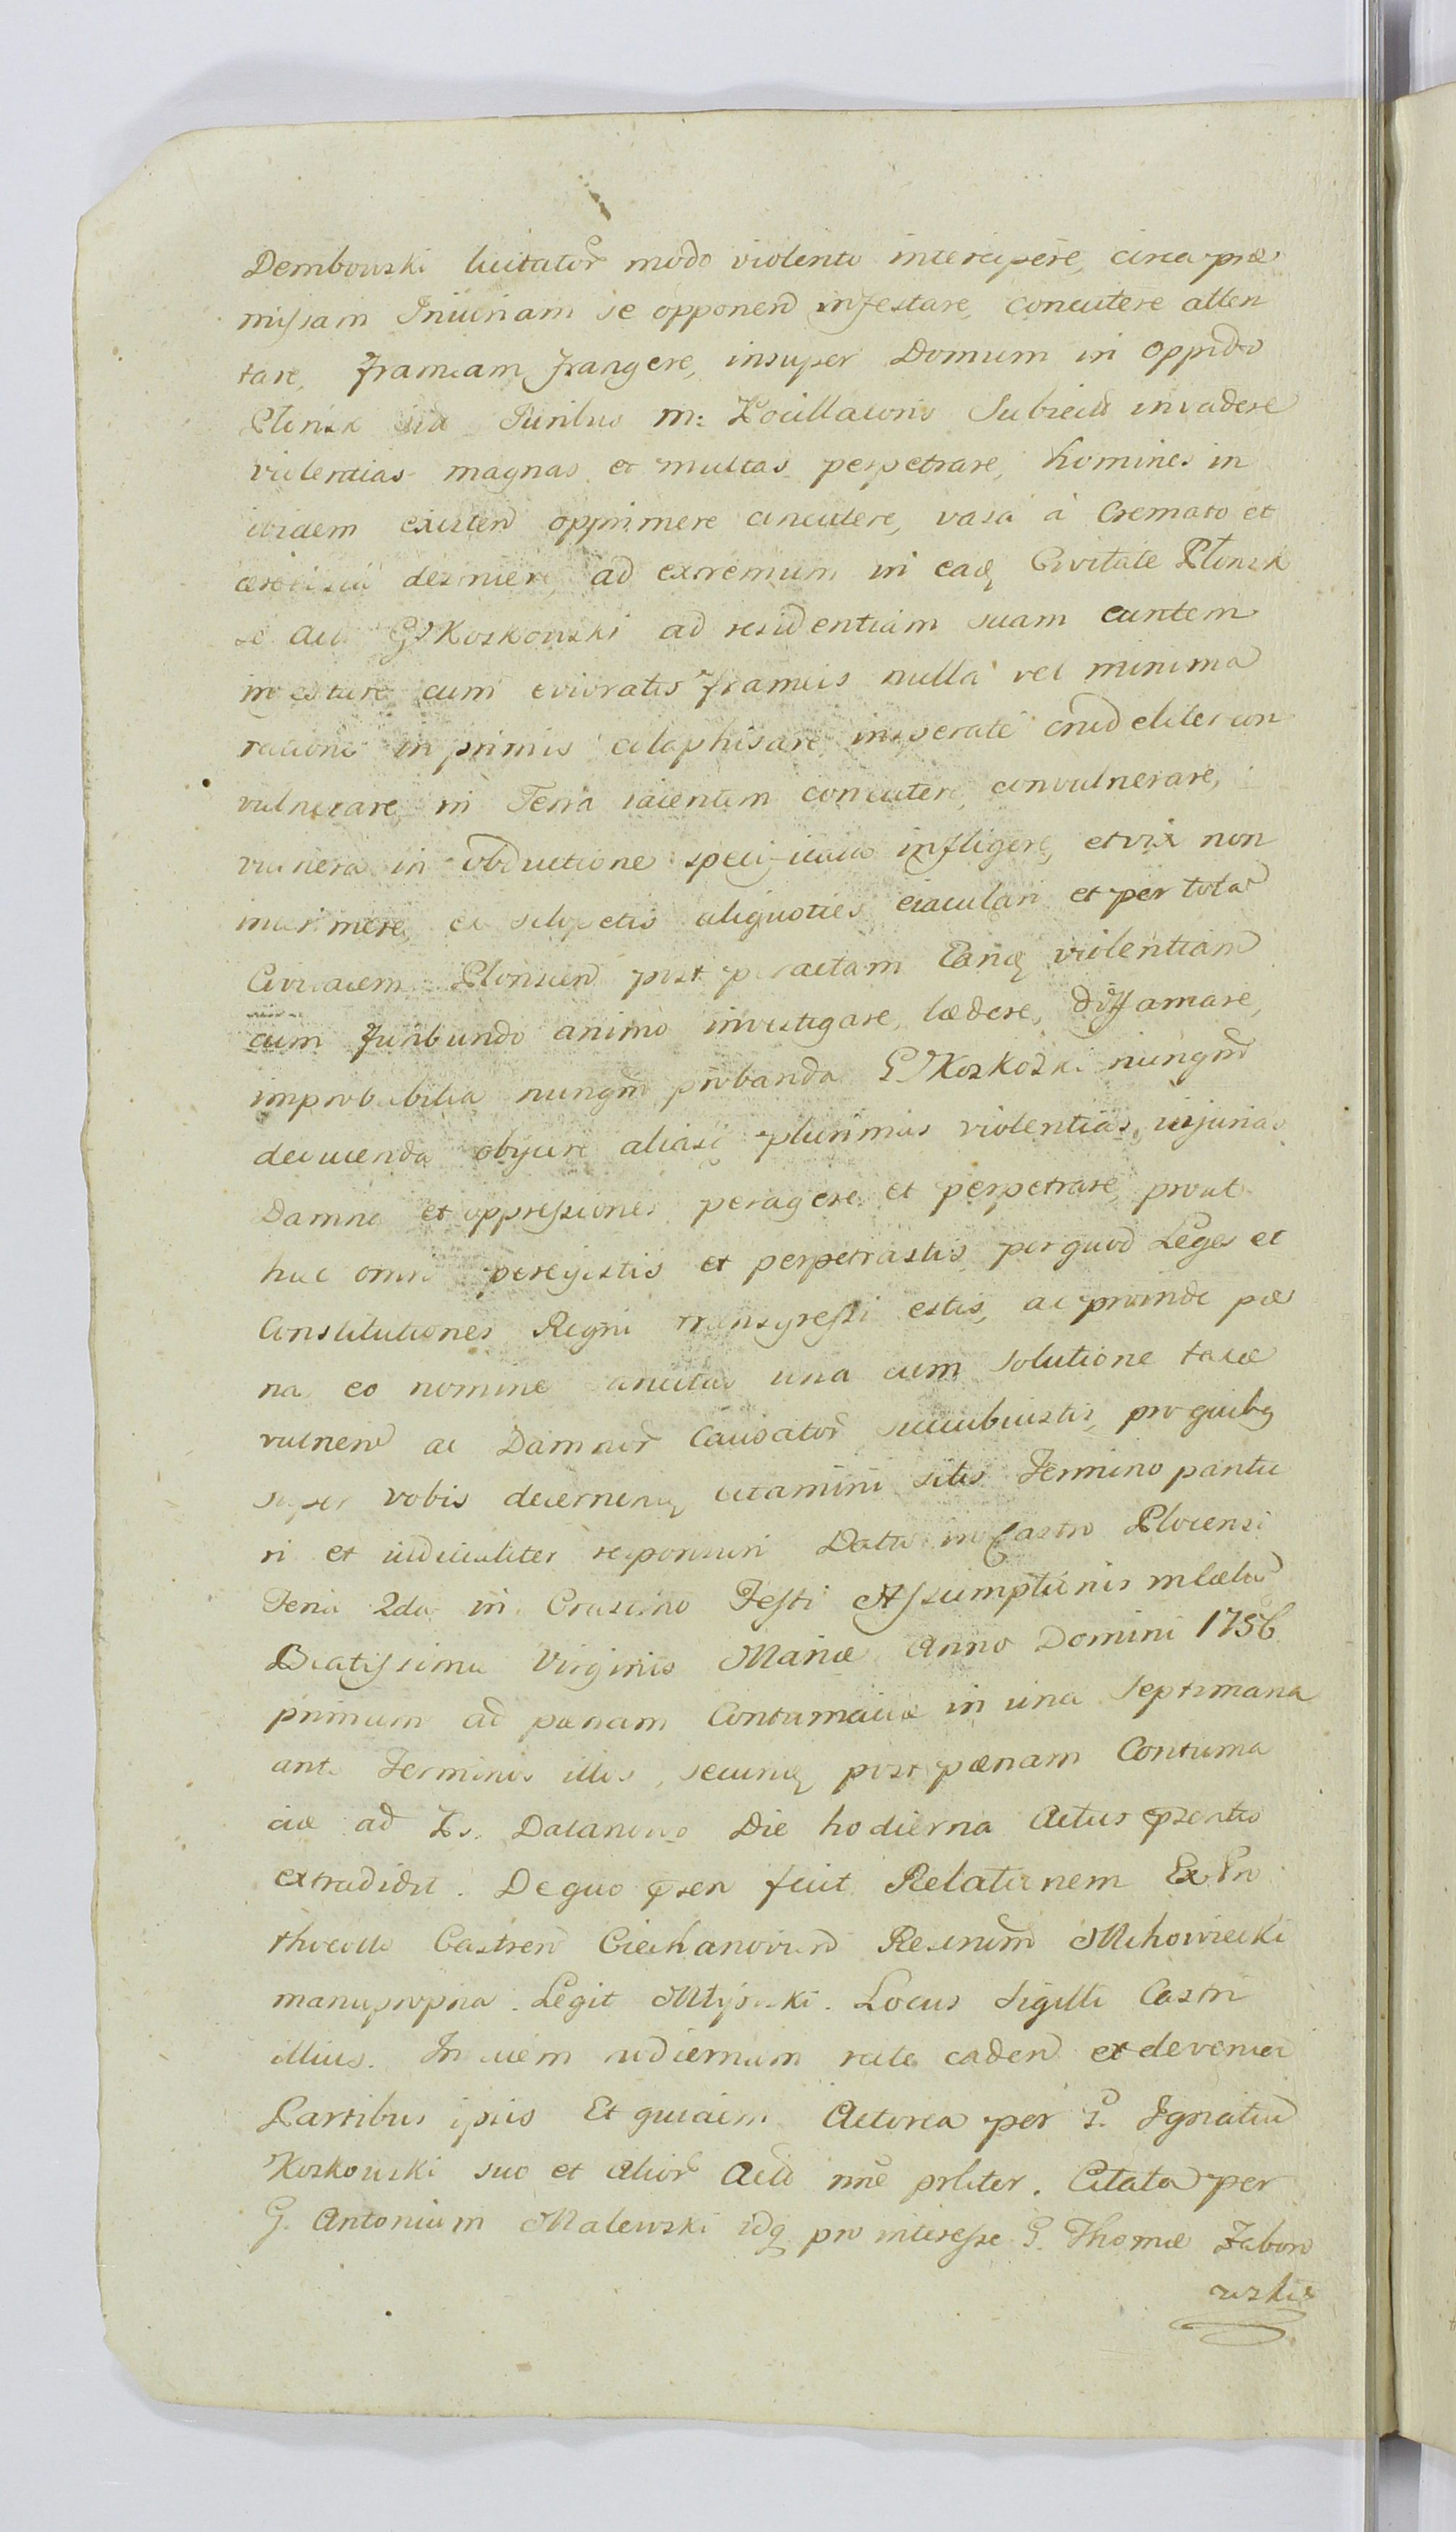 Dembowski licitator modo violento intercipere, circa præ
missam Iniuriam se opponen infestare, concutere atten
tare, frameam frangere, insuper Domum in oppido
Płonsk Juribus m: Subiecta invadere
violentias magnas et multas perpetrare, homines in
ibidem existen opprimere concutere, vasa à Cremato et
ad extremum in eadq Civitate Płonsk
G Koskowski ad residentiam suam euntem
cum evibratis frameis nulla vel minima
ratione in primis colaphisare insperaté crudeliter con
vulnerare, in Terra iacentem concutere, convulnerare,
vulnera in obductione specificata infligere, et vix non
interimere, ex sclopetis aliquoties eiaculari et per totã
Civitatem Płonscen post peractam Eanq violentiam
cum furibundo animo investigare, lædere, diffamare,
improbabilia nunqm probanda G Koskoski nunqm
deducenda obijcere aliasq plurimas violentias, injurias
Damna et oppressiones peragere et perpetrare, prout
hæc omnia peregistis et perpetrastis, per quod Leges et
Constitutiones Regni transgressi estis, ac proinde pæ
nas eo nomine sancitas una cum solutione taxæ
vulnerũ ac Damnor Causator succubuistis, pro quibq
super vobis decernenq citamini sitis Termino paritu
ri et iudicialiter responsuri Datu in Castro Plocensi
Feria 2da in Crastino Festi Assumptionis
Beatissimæ Virginis Mariæ Anno Domini 1756
primum ad pænam Contumaciæ in una Septimana
ante Terminos illos, secunq post pænam Contuma
ciæ ad Die hodierna Actus præsentis
extradidit. De quo præsen fecit Relationem Ex Pro
thocollo Castren Ciechanovien Michowiecki
manupropria. Legit Młyski. Locus Sigilli Castri
illius. In diem hodiernum recte caden et deveniẽ
Partibus ipsis Et quidem Actorea per G. Ignatiũ
Koskowski suo et alior Act nne prliter. Citata per
G. Antonium Malewski idq pro interesse G. Thomæ Zabor
owski